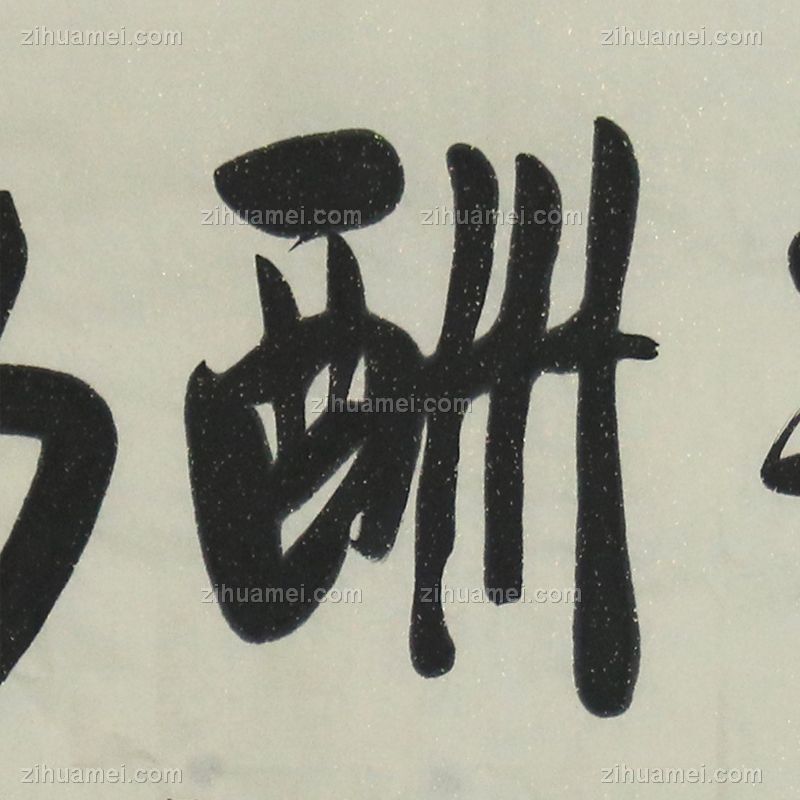 zihuamei.com zihuamei.com
酬
zihuamei.com zihuamei.com
zihuamei.com
zihuamei.com zihuamei.com
zihuamei.com zihuamei.com